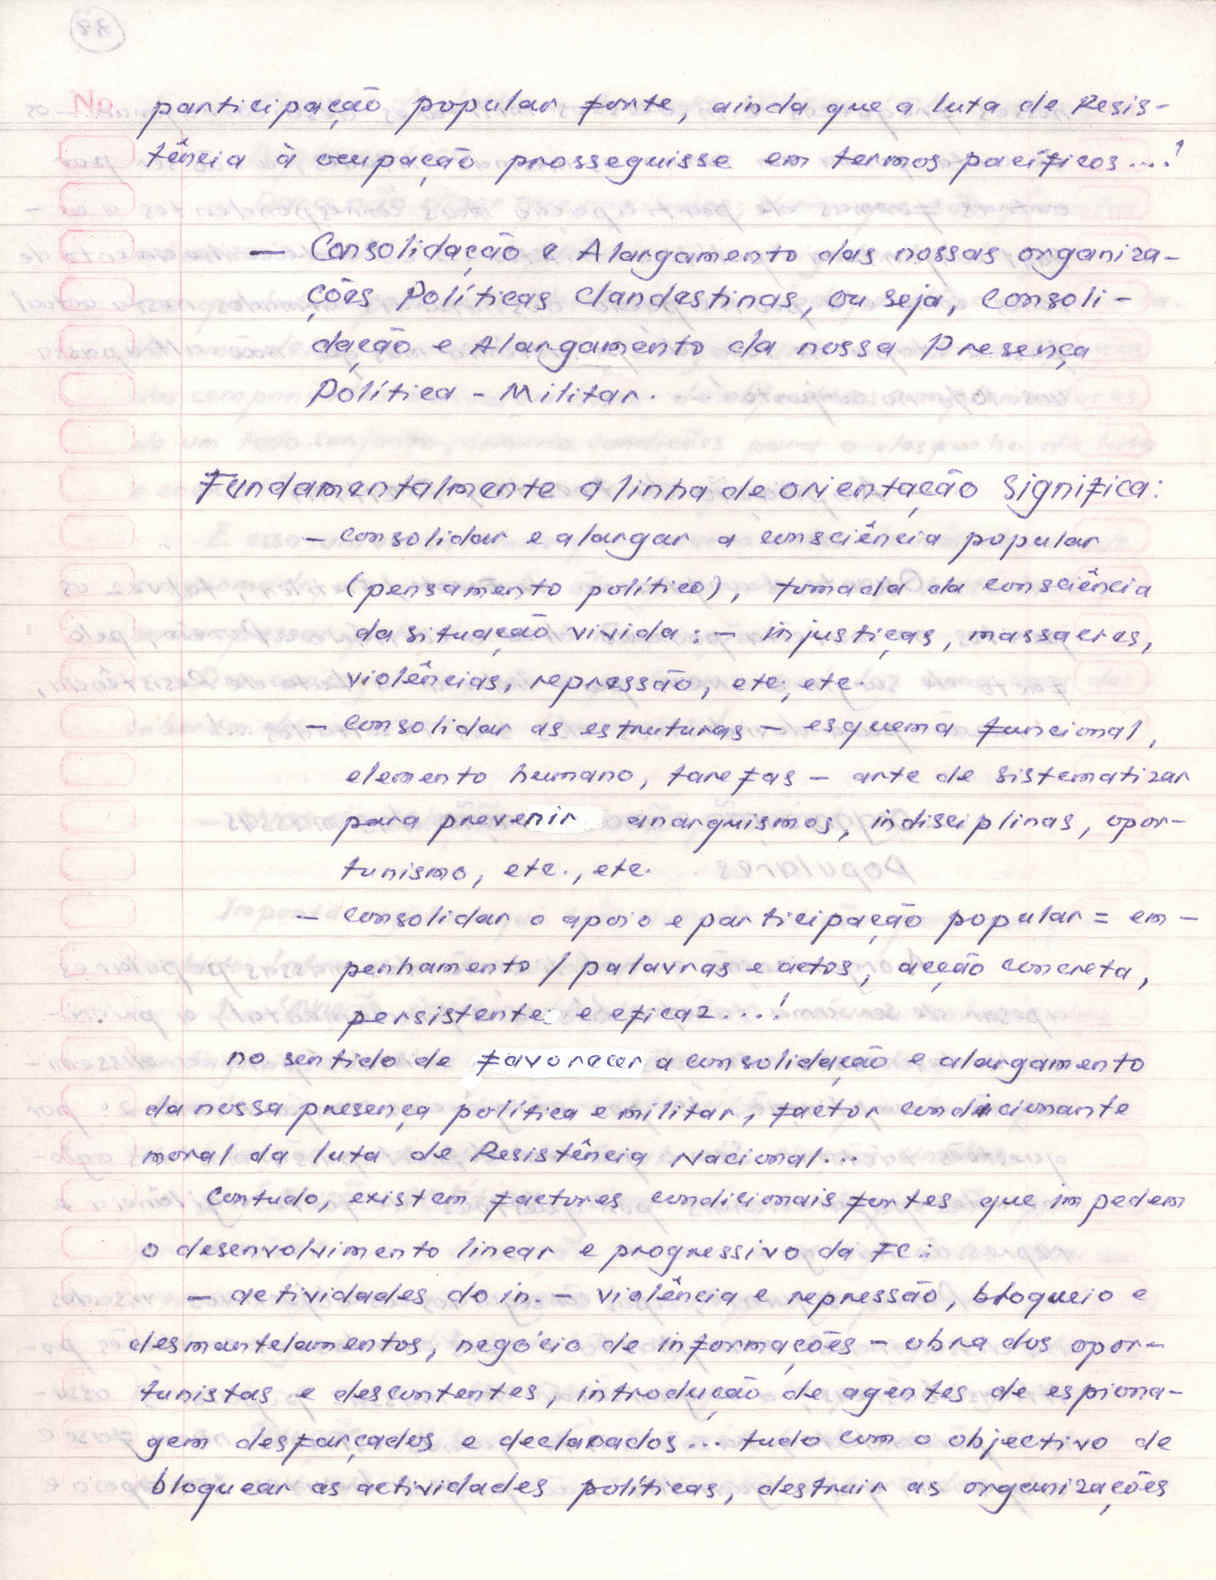 participação popular forte, ainda que a luta de Resis-
tência à ocupação prosseguisse em termos pacíficos...!
— Consolidação e Alargamento das nossas organiza-
ções Políticas Clandestinas, ou seja, Consoli-
dação e Alargamento da nossa Presença
Política - Militar.
Fundamentalmente a linha de orientação significa:
- consolidar e alargar a consciência popular
(pensamento político), tomada da consciência
da situação vivida: - injustiças, massacres,
violências, repressão, etc., etc.
- consolidar as estruturas - esquema funcional,
elemento humano, tarefas - arte de sistematizar
para prevenir anarquismos, indisciplinas, opor-
tunismo, etc., etc.
- consolidar o apoio e participação popular = em-
penhamento / palavras e actos, acção concreta,
persistente e eficaz...!
no sentido de favorecer a consolidação e alargamento
da nossa presença política e militar, factor condicionante
moral da luta de Resistência Nacional...
Contudo, existem factores condicionais fortes que impedem
o desenvolvimento linear e progressivo da FC:
- actividades do in. - violência e repressão, bloqueio e
desmantelamentos, negócio de informações - obra dos opor-
tunistas e descontentes, introdução de agentes de espiona-
gem desfarçados e declarados... tudo com o objectivo de
bloquear as actividades políticas, destruir as organizações